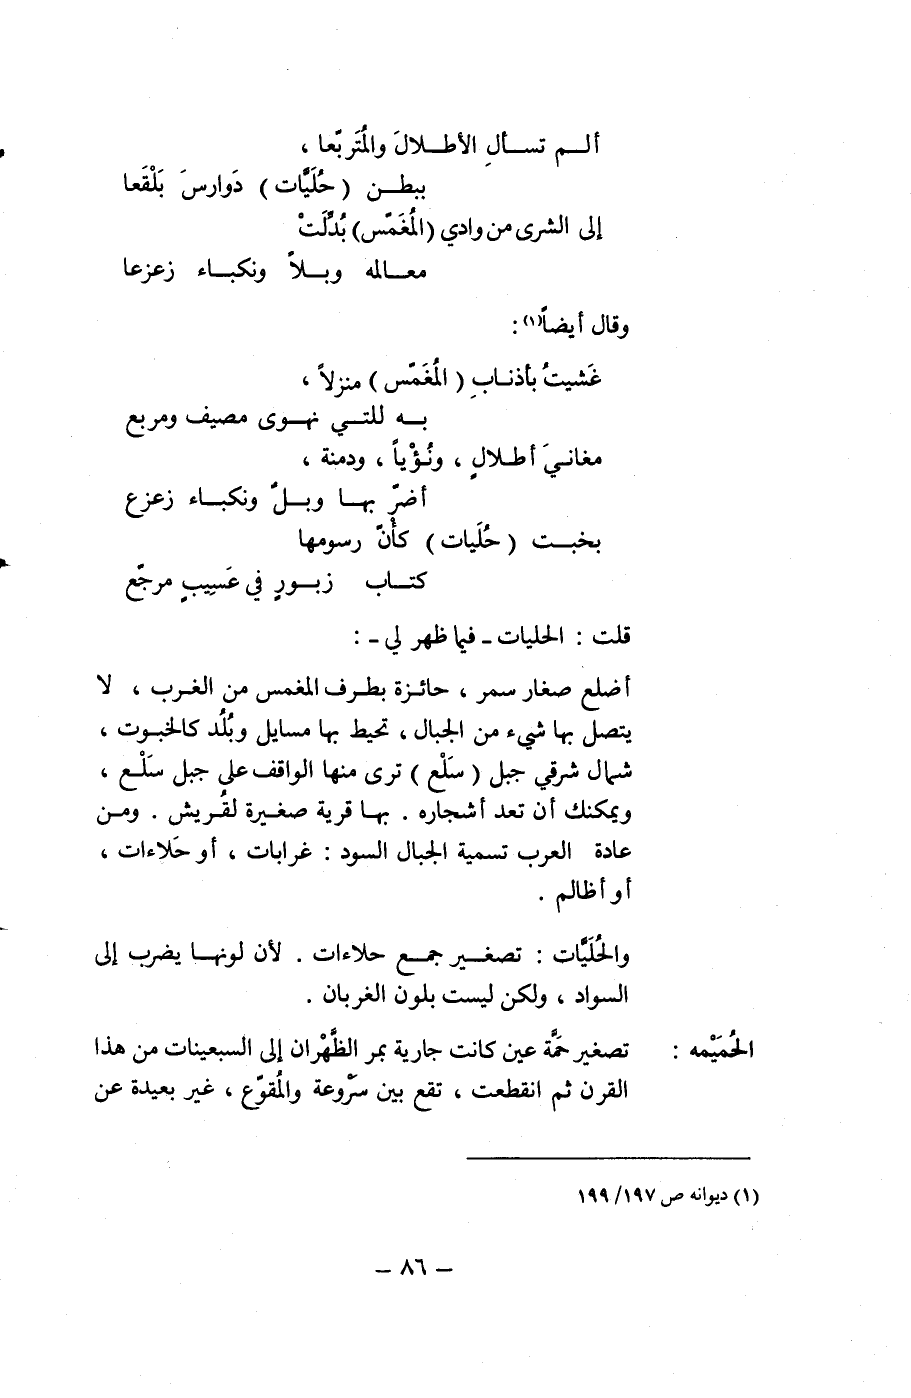 ألم تسألِ الأطلالَ والمُتَربّعا ،
ببطن (حُلَيَّات) دَوارسَ بَلْقَعا
إلى الشرى من وادي (المُغَمّس) بُدِّلَتْ
معالمه وبلاً ونكباء زعزعا
وقال أيضاً(١) :
غَشيتُ بأذنابِ (المُغَمّس) منزلاً ،
به للتي نهوى مصيف ومربع
مغانيَ أطلالٍ ، ونُؤْياً ، ودمنة ،
أضرّ بها وبلٌ ونكباء زعزع
بخبت (حُلَيات) كأنّ رسومها
كتاب زبورٍ في عَسِيبٍ مرجّع
قلت : الحليات ـ فيما ظهر لي ـ :
أضلع صغار سمر ، حائزة بطرف المغمس من الغرب ، لا
يتصل بها شيء من الجبال ، تحيط بها مسايل وبُلُد كالخبوت ،
شمال شرقي جبل (سَلْع) ترى منها الواقف على جبل سَلْع ،
ويمكنك أن تعد أشجاره . بها قرية صغيرة لقُريش . ومن
عادة العرب تسمية الجبال السود : غرابات ، أو حَلاءات ،
أو أظالم .
والحُلَيَّات : تصغير جمع حلاءات . لأن لونها يضرب إلى
السواد ، ولكن ليست بلون الغربان .
الحُمَيْمه : تصغير حَمَّة عين كانت جارية بمر الظَّهْران إلى السبعينات من هذا
القرن ثم انقطعت ، تقع بين سَرّوعة والمُقوّع ، غير بعيدة عن
(١) ديوانه ص ١٩٧/١٩٩
ـ ٨٦ ـ